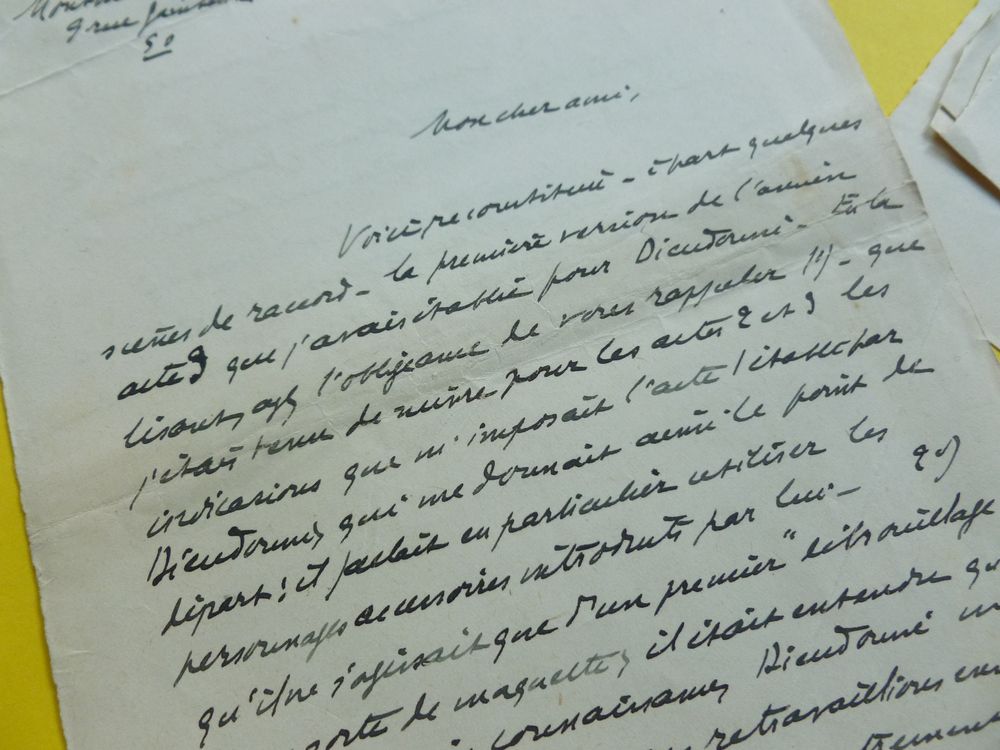 9 rue
50
Mon cher ami,
Voici reconstitué - à part quelques
scènes de raccord - la première version de l'ancien
acte 3 que j'avais établie pour Dieudonné - En la
lisant, ayez l'obligeance de vous rappeler 1º) - que
j'étais tenu de suivre pour les actes 2 et 3 les
indications que m'imposait l'acte 1 établi par
Dieudonné, qui me donnait ainsi le point de
départ : il fallait en particulier utiliser les
personnages accessoires introduits par lui - 2º)
qu'il ne s'agissait que d'un premier "débrouillage
sorte de maquette, il était entendu qu
connaissances Dieudonné
retravaillions